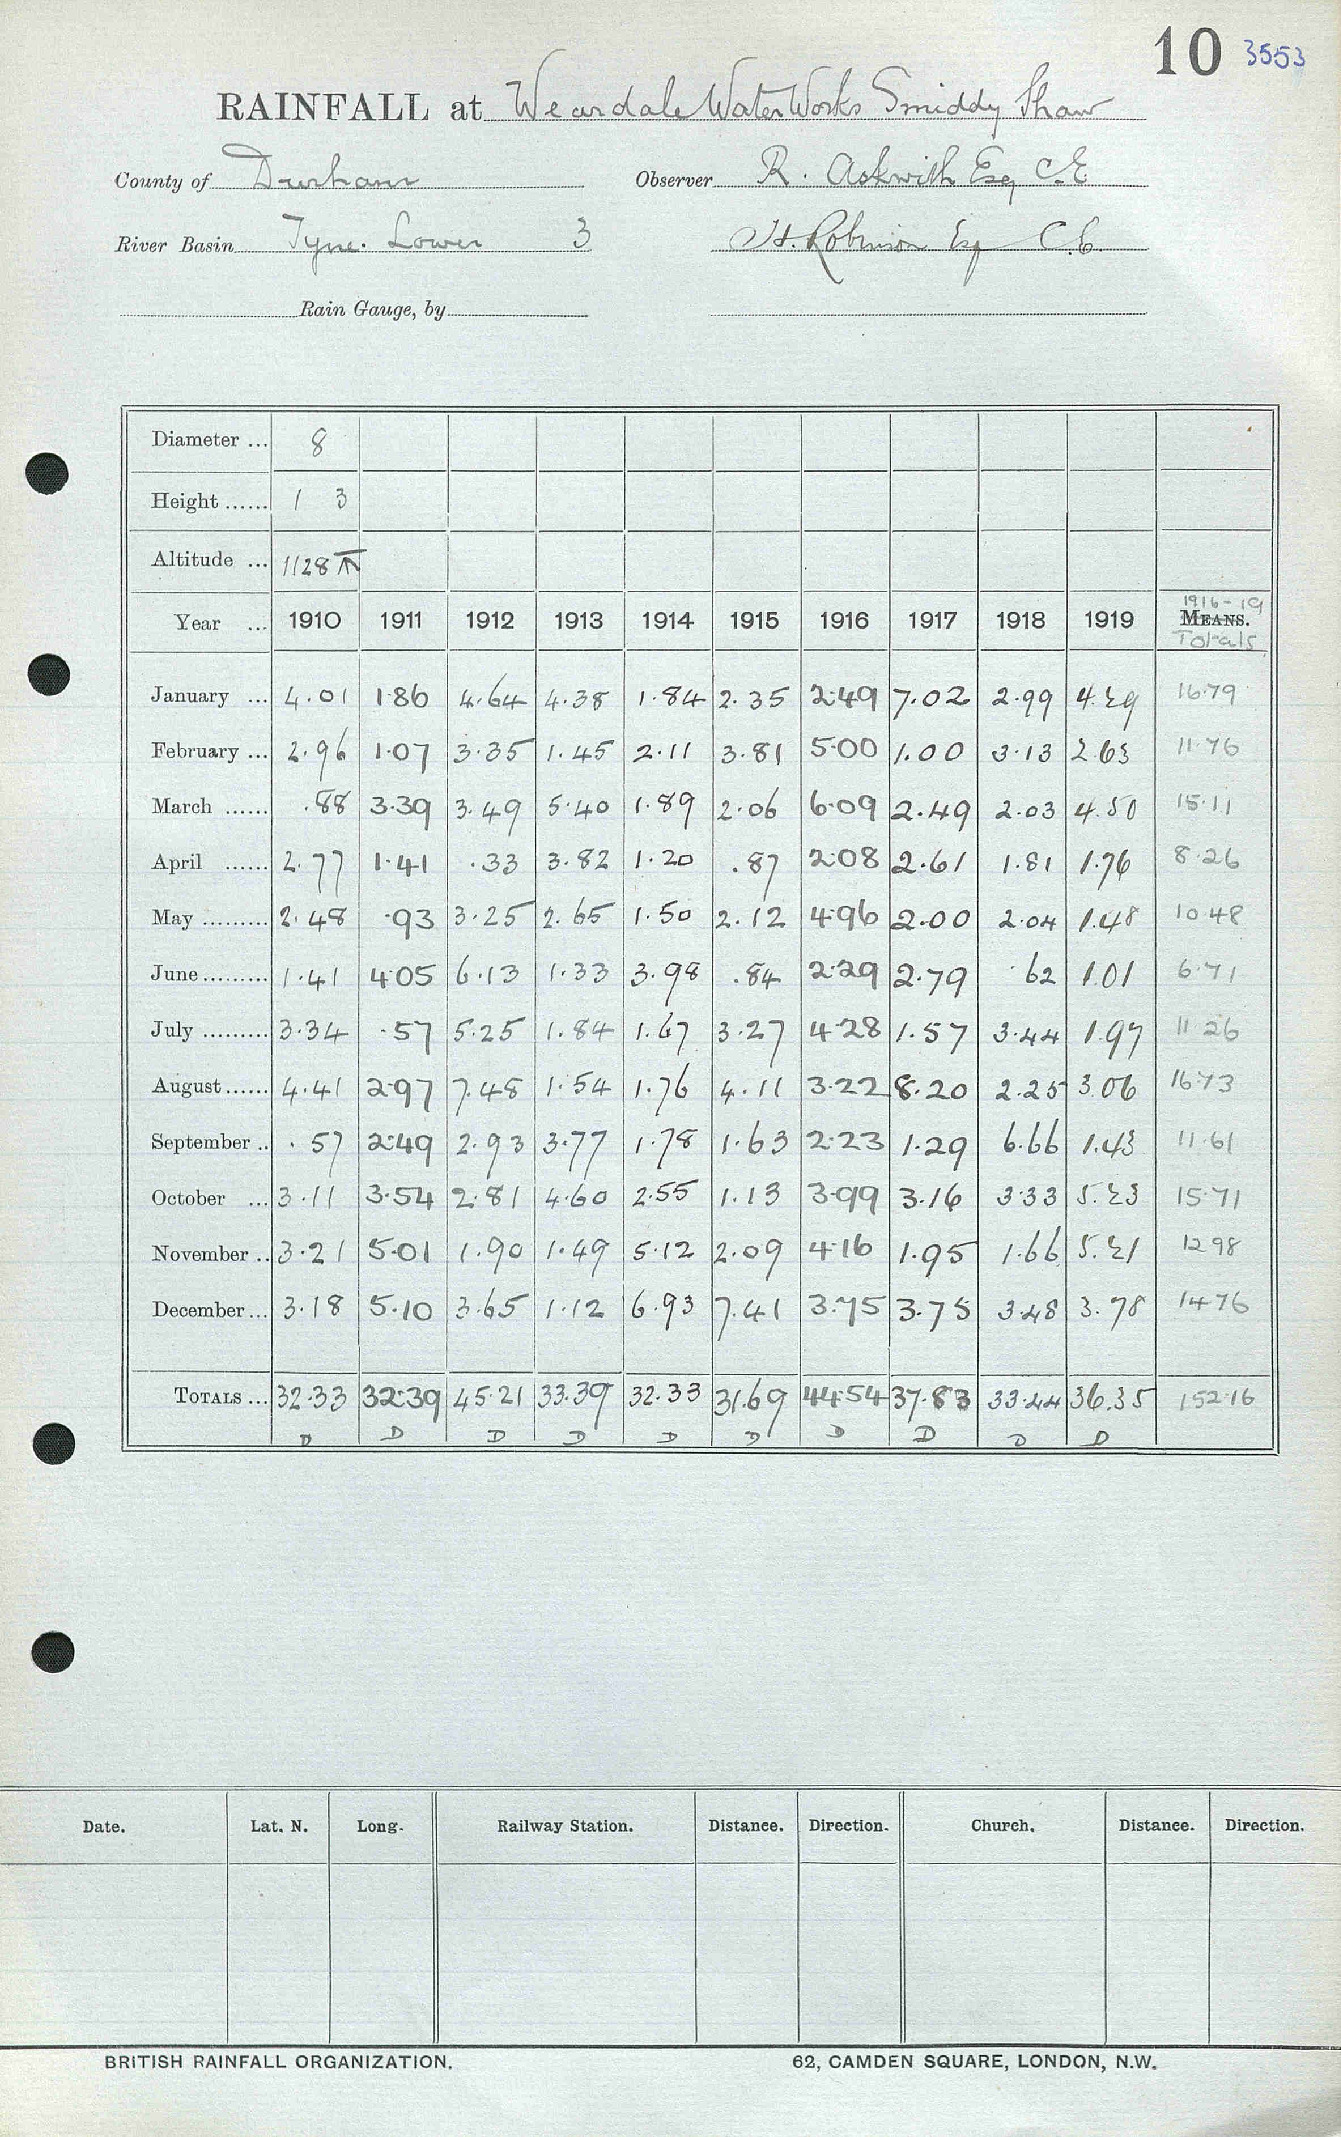 10 3553
RAINFALL at Weardale Water Works Smiddy Shaw
County of Durham Observer R. Askwith Esq C.E
River Basin Tyne. Lower 3 H. Robinson Esq C.E.
Rain Gauge, by
Diameter ... 8
Height ...... 1 3
Altitude ... 1128
1916-19
Year ... 1910 1911 1912 1913 1914 1915 1916 1917 1918 1919 MEANS.
Totals
January ... 4.01 1.86 4.64 4.38 1.84 2.35 2.49 7.02 2.99 4.29 16.79
February ... 2.96 1.07 3.35 1.45 2.11 3.81 5.00 1.00 3.13 2.63 11.76
March ...... .88 3.39 3.49 5.40 1.89 2.06 6.09 2.49 2.03 4.50 15.11
April ...... 2.77 1.41 .33 3.82 1.20 .87 2.08 2.61 1.81 1.76 8.26
May ......... 2.48 .93 3.25 2.65 1.50 2.12 4.96 2.00 2.04 1.48 10.48
June ......... 1.41 4.05 6.13 1.33 3.98 .84 2.29 2.79 .62 1.01 6.71
July ......... 3.34 .57 5.25 1.84 1.67 3.27 4.28 1.57 3.44 1.97 11.26
August ...... 4.41 2.97 7.48 1.54 1.76 4.11 3.22 8.20 2.25 3.06 16.73
September .. .57 2.49 2.93 3.77 1.78 1.63 2.23 1.29 6.66 1.43 11.61
October ... 3.11 3.54 2.81 4.60 2.55 1.13 3.99 3.16 3.33 5.23 15.71
November .. 3.21 5.01 1.90 1.49 5.12 2.09 4.16 1.95 1.66 5.21 12.98
December ... 3.18 5.10 3.65 1.12 6.93 7.41 3.75 3.75 3.48 3.78 14.76
TOTALS ... 32.33 32.39 45.21 33.39 32.33 31.69 44.54 37.83 33.44 36.35 152.16
D D D D D D D D D D
Date. Lat. N. Long. Railway Station. Distance. Direction. Church. Distance. Direction.
BRITISH RAINFALL ORGANIZATION. 62, CAMDEN SQUARE, LONDON, N.W.